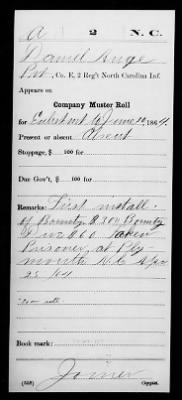 A 2 N. C.
Daniel Ange
Pvt, Co. E, 2 Reg't North Carolina Inf.
Appears on
Company Muster Roll
for Enlistmt to June 30, 1864.
Present or absent Absent
Stoppage, $ 100 for
Due Gov't, $ 100 for
Remarks: First install.
of Bounty Bounty
Due Taken
Prisoner, at Ply-
mouth N.C. Apr
25 /64
Book mark:
Joiner
(358) Copyist.